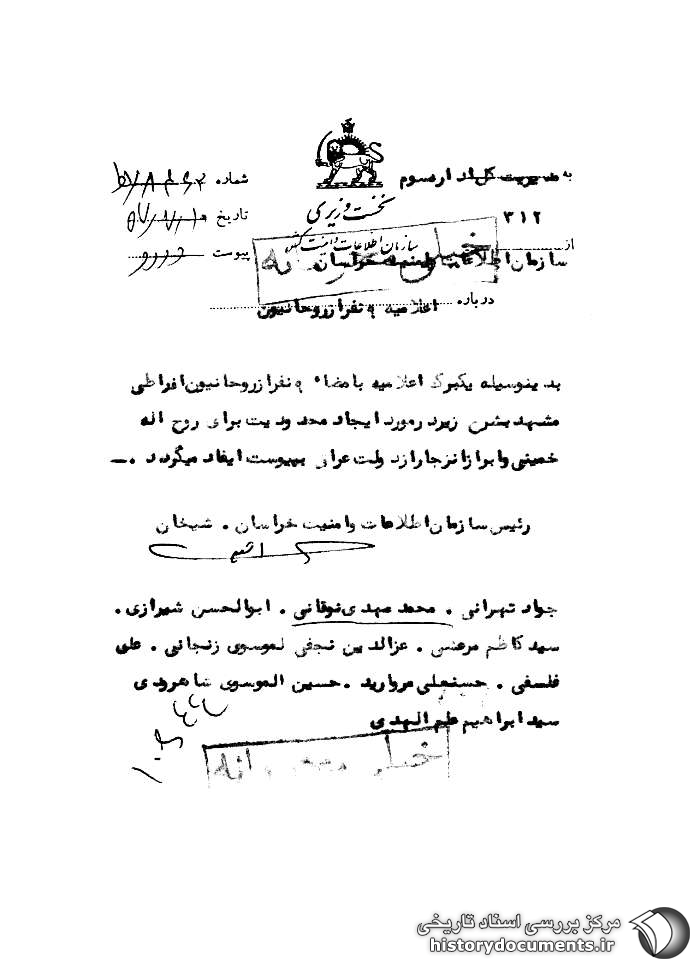 به مدیریت کل اداره سوم
۳۱۲
شماره
تاریخ
پیوست
نخست وزیری
سازمان اطلاعات و امنیت کشور
خیلی محرمانه
از
سازمان اطلاعات و امنیت خراسان
درباره اعلامیه ۹ نفر از روحانیون
بدینوسیله یکبرگ اعلامیه با مضاء ۹ نفر از روحانیون افراطی
مشهد بشرح زیر در مورد ایجاد محدودیت برای روح اله
خمینی و ابراز انزجار از دولت عراق بپیوست ایفاد میگردد .
رئیس سازمان اطلاعات و امنیت خراسان . شیخان
جواد تهرانی . محمد مهدی نوقانی . ابوالحسن شیرازی .
سید کاظم مرعشی . عزالدین نجفی لموسوی زنجانی . علی
فلسفی . حسنعلی مروارید . حسین الموسوی شاهرودی
سید ابراهیم علم الهدی
خیلی محرمانه
مرکز بررسی اسناد تاریخی
historydocuments.ir